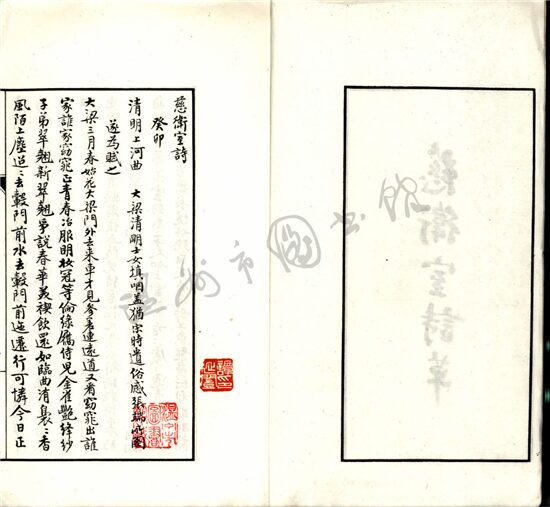 慈衛室詩
癸卯
清明上河曲 大梁清明士女填咽蓋猶宋時遺俗感張擇端圖
遂為賦之
大梁三月春始花大梁門外去來車才見參差連遠道又看窈窕出誰
家誰家窈窕正青春冶服明妝冠等倫綠幰侍兒金雀艷絳紗
子弟翠翹新翠翹爭說春華美禊飲還如臨曲清裊裊香
風陌上塵迢迢去轂門前水去轂門前迤邐行可憐今日正
慈衛室詩草
溫州市圖書館